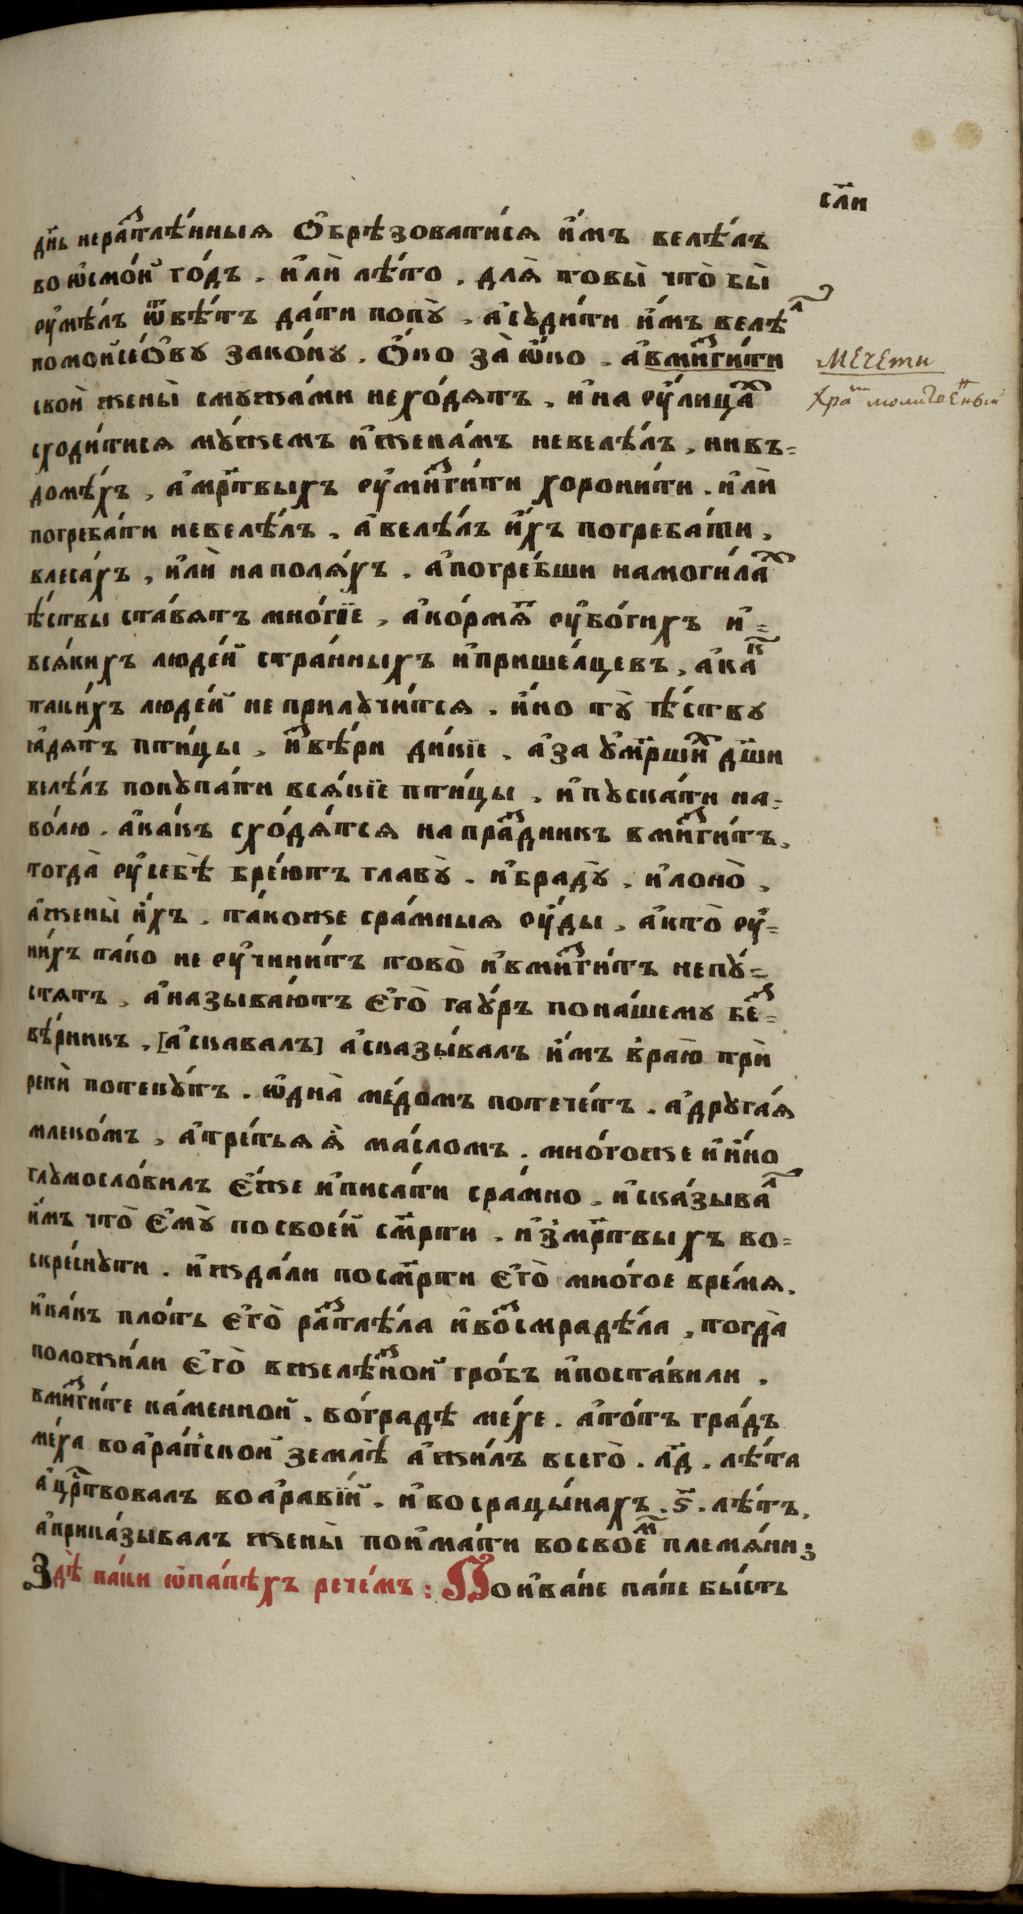 сл҃и
дн҃ь нераⷭ҇тлѣ́нныя Ѻ҆брѣ́зоватися и҆́мъ велѣ́лъ
во ѡ҆смо́й го́дъ . и҆лѝ лѣ́то . для̀ товы̀ что̀ бы̀
ᲂу҆мѣ́лъ ѿвѣ́тъ да́ти попꙋ̀ . а҆сꙋди́ти и҆̀мъ велѣⷧ҇
помоѵсе́ѻвꙋ зако́нꙋ . Ѻ҆́ко за̀ ѡ҆́ко . а҆вми́згити
свой жены̀ смꙋжа́ми нехо́дятъ . и҆на ᲂу҆́лицаⷯ
сходи́тися мꙋ́жемъ и҆жена́мъ невелѣ́лъ , нивъ-
домѣ́хъ , а҆мр҃твыхъ ᲂу҆ми́згити хорони́ти . и҆лѝ
погреба́ти невелѣ́лъ . а҆велѣ́лъ и҆́хъ погреба́ти ,
влеса́хъ , и҆лѝ наполя́хъ . а҆погре́бши намоги́лаⷯ
ѣ́ствы ста́вятъ мно́гїе , а҆ко́рмяⷮ ᲂу҆бо́гихъ и҆-
вся́кихъ люде́й стра́нныхъ и҆прише́лцевъ , а҆каⷦ҇
таки́хъ люде́й не прилꙋчи́тся . и҆́но тꙋ̀ ѣ́ствꙋ
ꙗ҆дя́тъ пти́цы , и҆ꙁвѣ́ри ди́кїе . а҆за ᲂу҆ме́ршиⷯ дш҃и
велѣ́лъ покꙋпа́ти вся́кїе пти́цы , и҆пꙋска́ти на-
во́лю . а҆ка́къ схо́дятся на праꙁдникъ вми́згитъ ,
тогда̀ ᲂу҆себѐ брѣ́ютъ главꙋ̀ . и҆брадꙋ̀ . и҆лоно̀ ,
а҆жены̀ и҆́хъ . та́коже сра́мныя ᲂу҆́ды , а҆кто̀ ᲂу҆-
ни́хъ тако не ᲂу҆чини́тъ товѡ̀ и҆вми́згитъ непꙋ́-
стятъ , а҆называ́ютъ є҆го̀ гаꙋ́ръ пона́шемꙋ беꙁ-
вѣ́рникъ , [а҆скавалъ] а҆ска́зывалъ и҆̀мъ враю̀ трѝ
рекѝ потекꙋ́тъ . ѡ҆дна̀ ме́домъ потече́тъ . а҆дрꙋга́я
млеко́мъ , а҆тре́тьяя̀ ма́сломъ . мно́гоже и҆и҆́но
глꙋмосло́вилъ є҆́же и҆писа́ти сра́мно . и҆ска́зываⷧ҇
и҆́мъ что̀ є҆мꙋ̀ посвое́й см҃рти . и҆ꙁмр҃твыхъ во-
скре́снꙋти . и҆жда́ли посм҃рти є҆го̀ мно́гое вре́мя .
и҆ка́къ пло́ть є҆го̀ раⷭ҇тлѣ́ла и҆воꙁсмрадѣ́ла , тогда̀
положи́ли є҆го̀ вжелѣ́ꙁной гро́бъ и҆поста́вили ,
вми́згите ка́менной . во́градѣ мехе . а҆то́тъ гра́дъ
ме́ха воа҆ра́пской землѐ а҆жи́лъ всего̀ . л҃д . лѣ́та
а҆црⷭ҇твовалъ воа҆равїй . и҆восрацы́нахъ . ѕ҃ . лѣ́тъ ,
а҆прика́зывалъ жены̀ поима́ти восвоеⷨ племя́ни ;
Здѣ̀ па́ки ѡ҆па́пѣхъ рече́мъ : По и҆ва́не папе бы́сть
Мечети
Храⷨ молитвеⷩныи